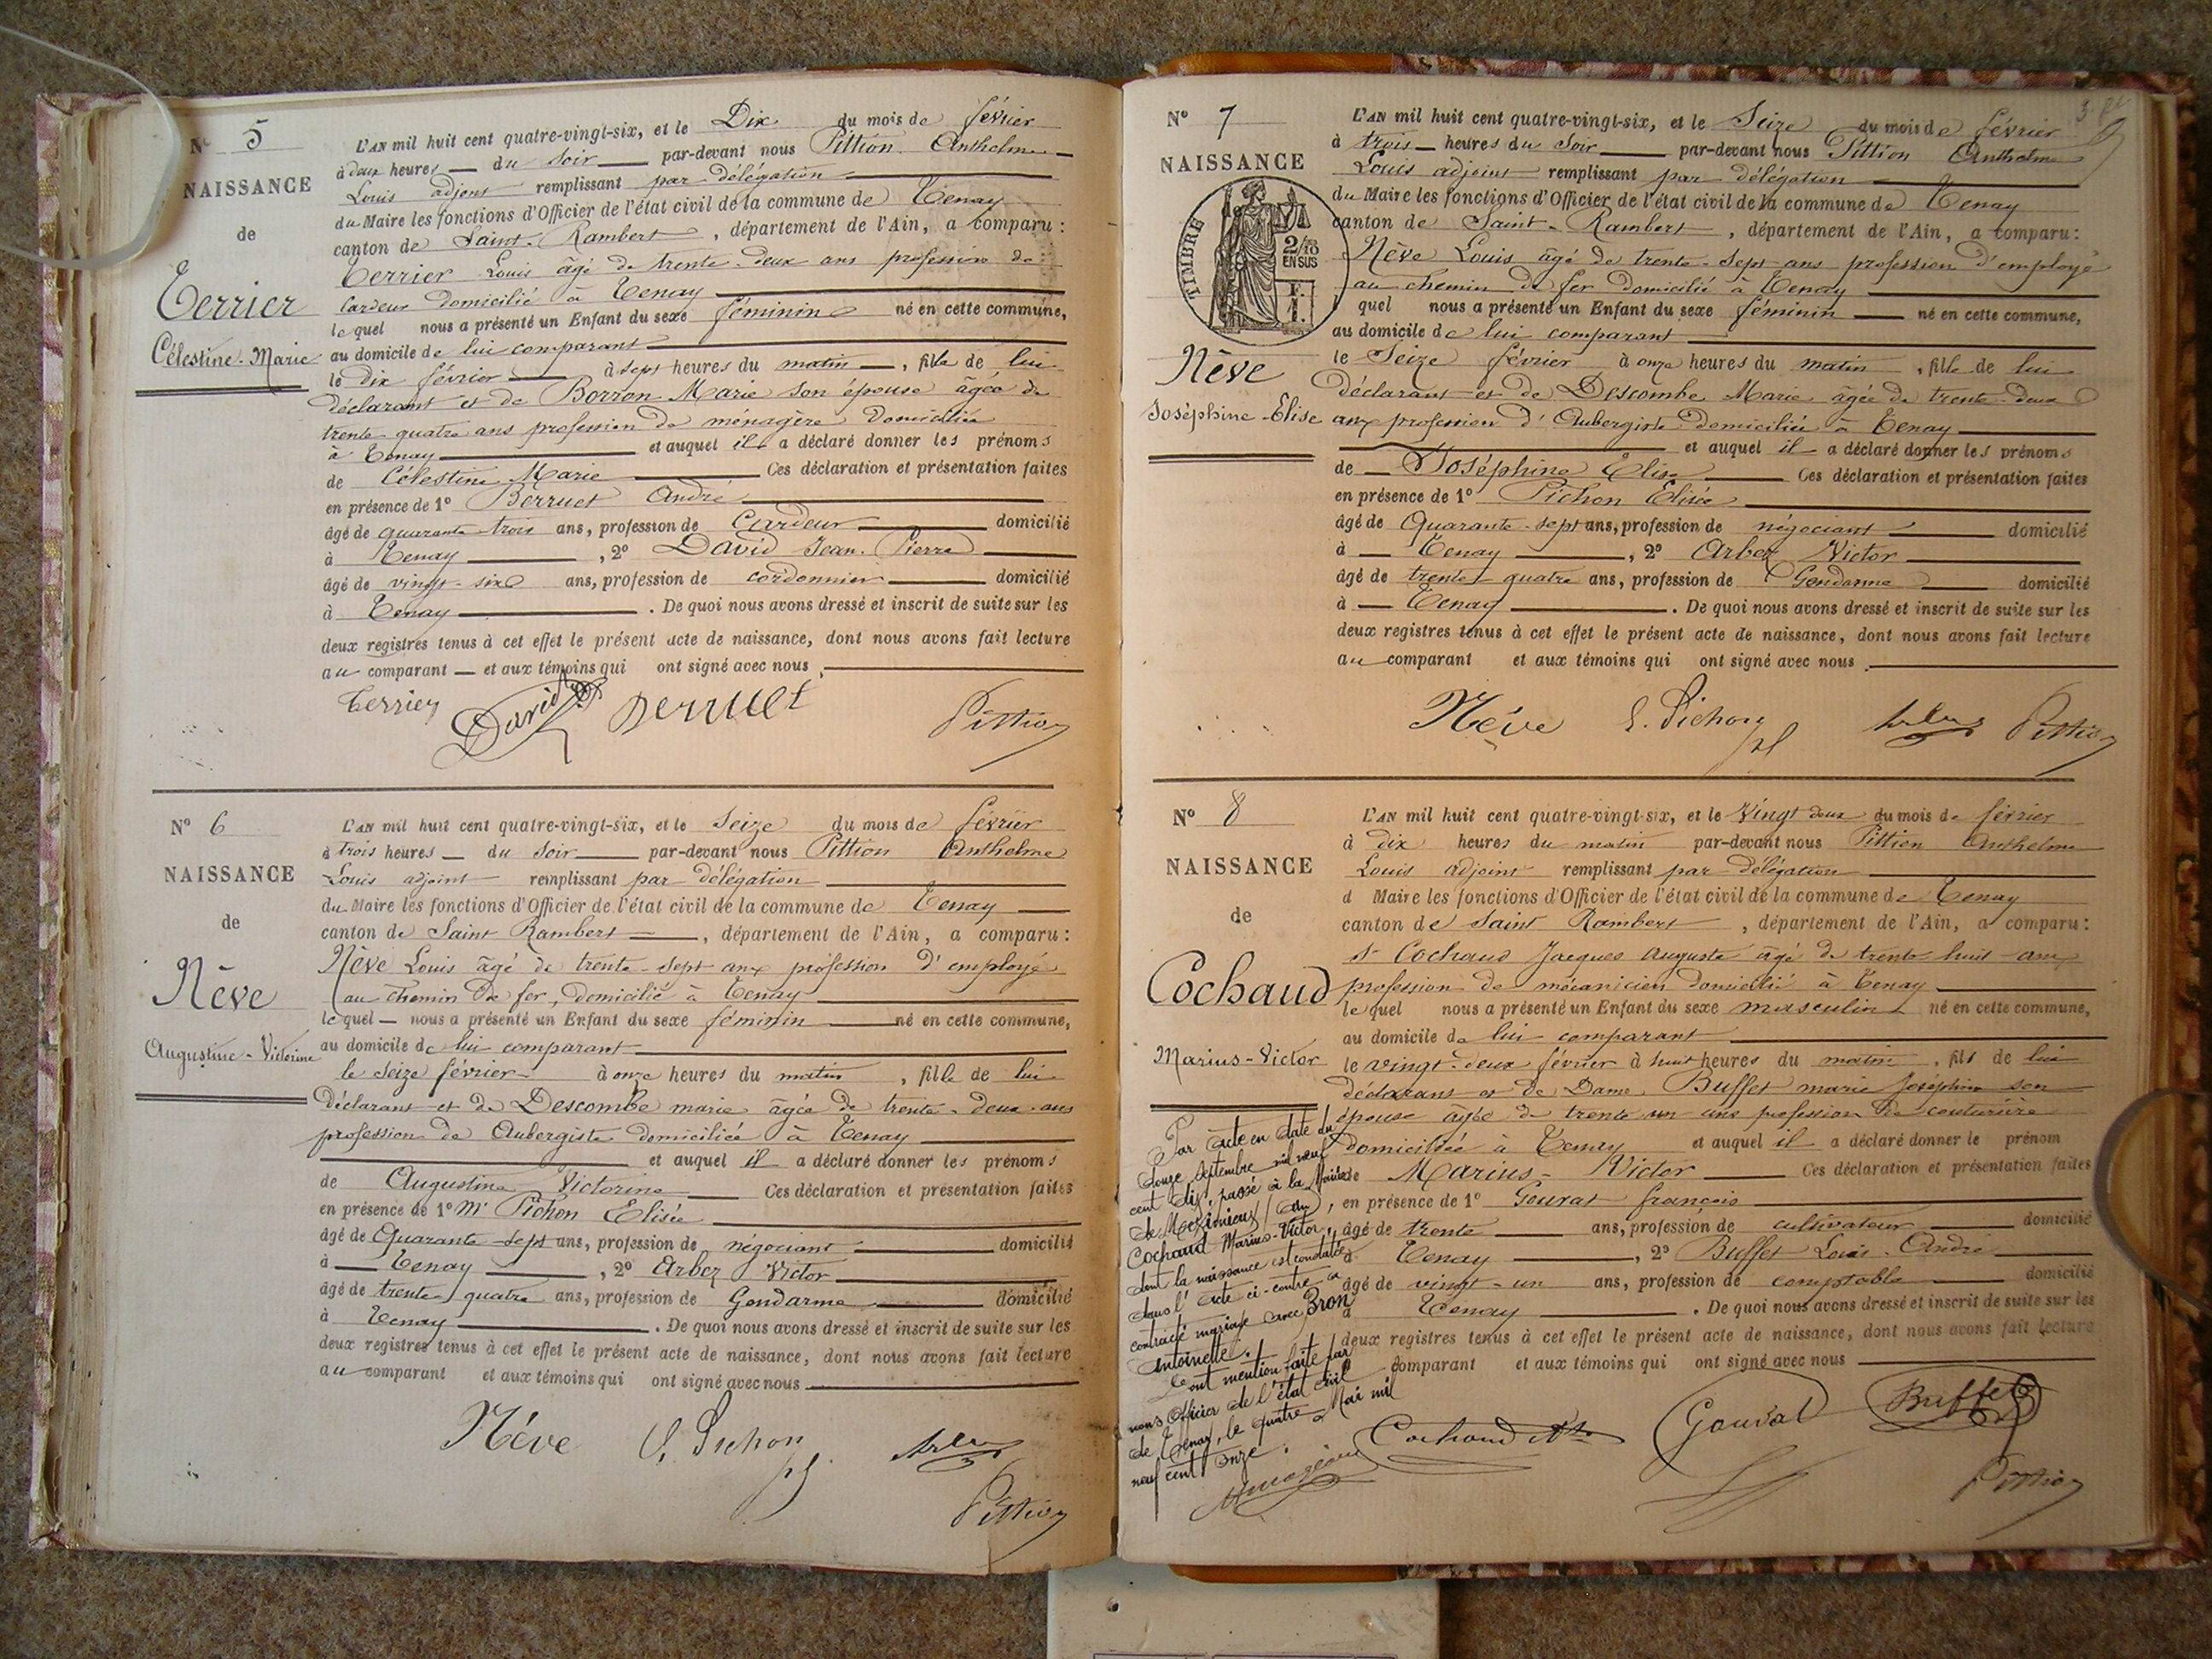 N° 5
NAISSANCE
de
Terrier
Célestine-Marie
L'AN mil huit cent quatre-vingt-six, et le Dix du mois de février
à deux heures du soir par-devant nous Pittion Anthelme
Louis adjoint remplissant par délégation
du Maire les fonctions d'Officier de l'état civil de la commune de Tenay
canton de Saint-Rambert, département de l'Ain, a comparu :
Terrier Louis âgé de trente-deux ans profession de
Cardeur domicilié à Tenay
lequel nous a présenté un Enfant du sexe féminin né en cette commune,
au domicile de lui comparant
le dix février à sept heures du matin, fille de lui
déclarant et de Borron Marie son épouse âgée de
trente quatre ans profession de ménagère domiciliée
à Tenay et auquel il a déclaré donner les prénoms
de Célestine Marie Ces déclaration et présentation faites
en présence de 1° Berruet André
âgé de quarante-trois ans, profession de Cardeur domicilié
à Tenay, 2° David Jean-Pierre
âgé de vingt-six ans, profession de cordonnier domicilié
à Tenay. De quoi nous avons dressé et inscrit de suite sur les
deux registres tenus à cet effet le présent acte de naissance, dont nous avons fait lecture
au comparant et aux témoins qui ont signé avec nous.
Terrier David Berruet Pittion
N° 6
NAISSANCE
de
Nève
Augustine-Victorine
L'AN mil huit cent quatre-vingt-six, et le Seize du mois de février
à trois heures du soir par-devant nous Pittion Anthelme
Louis adjoint remplissant par délégation
du Maire les fonctions d'Officier de l'état civil de la commune de Tenay
canton de Saint Rambert, département de l'Ain, a comparu :
Nève Louis âgé de trente-sept ans profession d'employé
au chemin de fer, domicilié à Tenay
lequel nous a présenté un Enfant du sexe féminin né en cette commune,
au domicile de lui comparant
le Seize février à onze heures du matin, fille de lui
déclarant et de Descombe marie âgée de trente-deux ans
profession de Aubergiste domiciliée à Tenay
et auquel il a déclaré donner les prénoms
de Augustine Victorine Ces déclaration et présentation faites
en présence de 1° Mr Pichon Elisée
âgé de Quarante-sept ans, profession de négociant domicilié
à Tenay, 2° Arbez Victor
âgé de trente quatre ans, profession de Gendarme domicilié
à Tenay. De quoi nous avons dressé et inscrit de suite sur les
deux registres tenus à cet effet le présent acte de naissance, dont nous avons fait lecture
au comparant et aux témoins qui ont signé avec nous
Nève E. Pichon Arbez
Pittion
N° 7
NAISSANCE
TIMBRE
2/10
EN SUS
Nève
Joséphine-Elise
L'AN mil huit cent quatre-vingt-six, et le Seize du mois de février
à trois heures du soir par-devant nous Pittion Anthelme
Louis adjoint remplissant par délégation
du Maire les fonctions d'Officier de l'état civil de la commune de Tenay
canton de Saint-Rambert, département de l'Ain, a comparu :
Nève Louis âgé de trente-sept ans profession d'employé
au chemin de fer domicilié à Tenay
quel nous a présenté un Enfant du sexe féminin né en cette commune,
au domicile de lui comparant
le Seize février à onze heures du matin, fille de lui
déclarant et de Descombe Marie âgée de trente-deux
ans profession d'Aubergiste domiciliée à Tenay
et auquel il a déclaré donner les prénoms
de Joséphine Elise Ces déclaration et présentation faites
en présence de 1° Pichon Elisée
âgé de Quarante-sept ans, profession de négociant domicilié
à Tenay, 2° Arbez Victor
âgé de trente quatre ans, profession de Gendarme domicilié
à Tenay. De quoi nous avons dressé et inscrit de suite sur les
deux registres tenus à cet effet le présent acte de naissance, dont nous avons fait lecture
au comparant et aux témoins qui ont signé avec nous.
Nève E. Pichon Arbez Pittion
N° 8
NAISSANCE
de
Cochaud
Marius-Victor
L'AN mil huit cent quatre-vingt-six, et le Vingt deux du mois de février
à dix heures du matin par-devant nous Pittion Anthelme
Louis adjoint remplissant par délégation
d Maire les fonctions d'Officier de l'état civil de la commune de Tenay
canton de Saint Rambert, département de l'Ain, a comparu :
sr Cochaud Jacques Auguste âgé de trente huit ans
profession de mécanicien domicilié à Tenay
lequel nous a présenté un Enfant du sexe masculin né en cette commune,
au domicile de lui comparant
le vingt-deux février à huit heures du matin, fils de lui
déclarant et de Dame Buffet marie Joséphine son
épouse âgée de trente un ans profession de couturière
domiciliée à Tenay et auquel il a déclaré donner le prénom
de Marius-Victor Ces déclaration et présentation faites
en présence de 1° Gouvat françois
âgé de trente ans, profession de cultivateur domicilié
à Tenay, 2° Buffet Louis-André
âgé de vingt-un ans, profession de comptable domicilié
à Tenay. De quoi nous avons dressé et inscrit de suite sur les
deux registres tenus à cet effet le présent acte de naissance, dont nous avons fait lecture
comparant et aux témoins qui ont signé avec nous
Cochaud Gouvat Buffet
Pittion
Par acte en date du
douze septembre mil neuf
cent dix, passé à la Mairie
de Meximieux (Ain),
Cochaud Marius-Victor,
dont la naissance est constatée
dans l'acte ci-contre a
contracté mariage avec Bron
Antoinette.
Dont mention faite par
nous Officier de l'état civil
de Tenay, le quatre Mai mil
neuf cent onze.